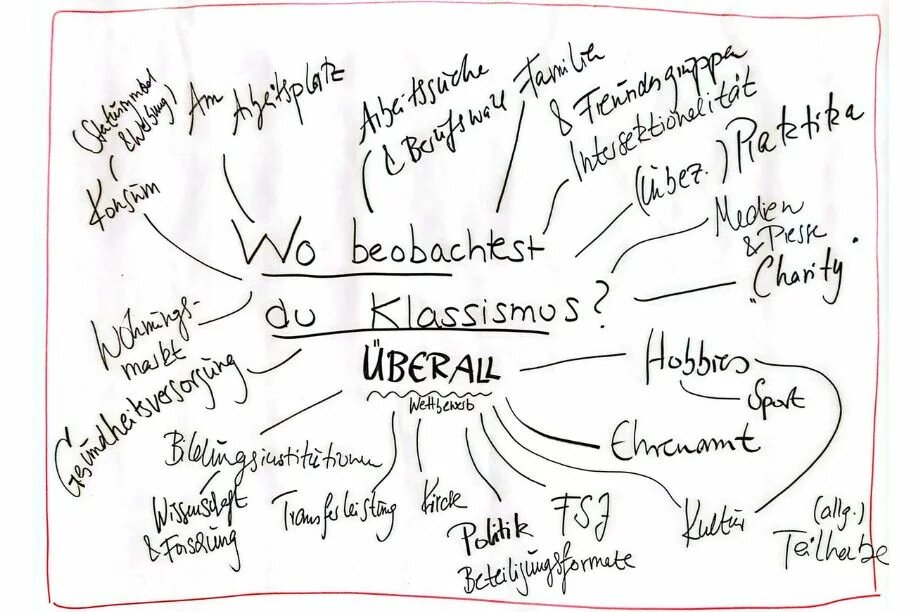 (Statussymbol
& Werbung)
Konsum
Am Arbeitsplatz
Arbeitssuche
& Berufswahl
Familie
& Freundesgruppen
Intersektionalität
(unbez.) Praktika
Medien
& Presse
"Charity"
Wo beobachtest
du Klassismus?
ÜBERALL
Wettbewerb
Wohnungs-
markt
Gesundheitsversorgung
Bildungsinstitutionen
Wissenschaft
& Forschung
Transferleistung
Kirche
Politik
Beteiligungsformate
FSJ
Hobbies
Sport
Ehrenamt
Kultur
(allg.)
Teilhabe